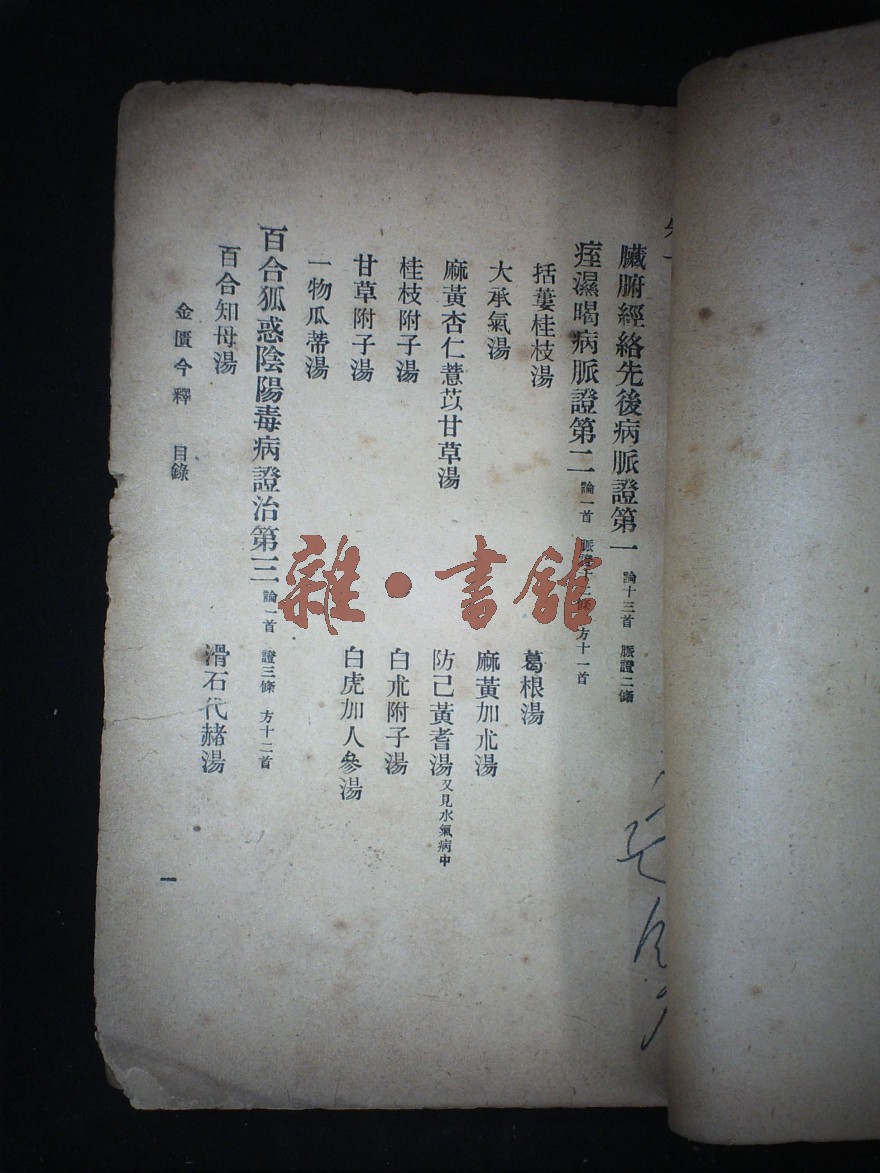 臟腑經絡先後病脈證第一 論十三首 脈證二條
痓濕暍病脈證第二 論一首 脈證十二條 方十一首
括蔞桂枝湯 葛根湯
大承氣湯 麻黃加朮湯
麻黃杏仁薏苡甘草湯 防己黃耆湯 又見水氣病中
桂枝附子湯 白朮附子湯
甘草附子湯 白虎加人參湯
一物瓜蒂湯
百合狐惑陰陽毒病證治第三 論一首 證三條 方十二首
百合知母湯 滑石代赭湯
金匱今釋 目錄 一
雜·書館